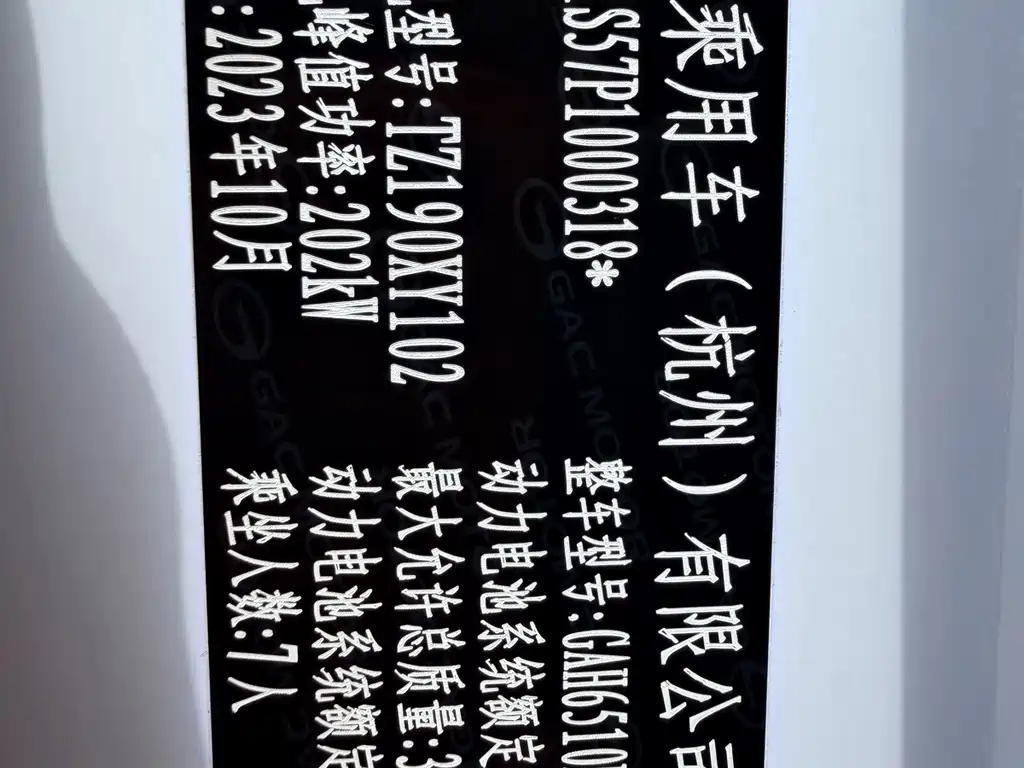 乘用车（杭州）有限公司
S57P1000318* 整车型号:GAH6510
动力电池系统额定
型号:TZ190XY102 最大允许总质量:3
峰值功率:202kW 动力电池系统额定
:2023年10月 乘坐人数:7人
GAC MOTOR
GAC MOTOR
GAC MO